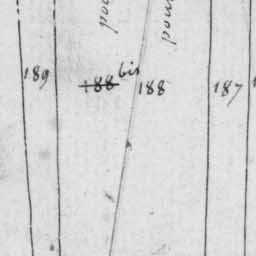 pou
pour
189
188 bis
188
187